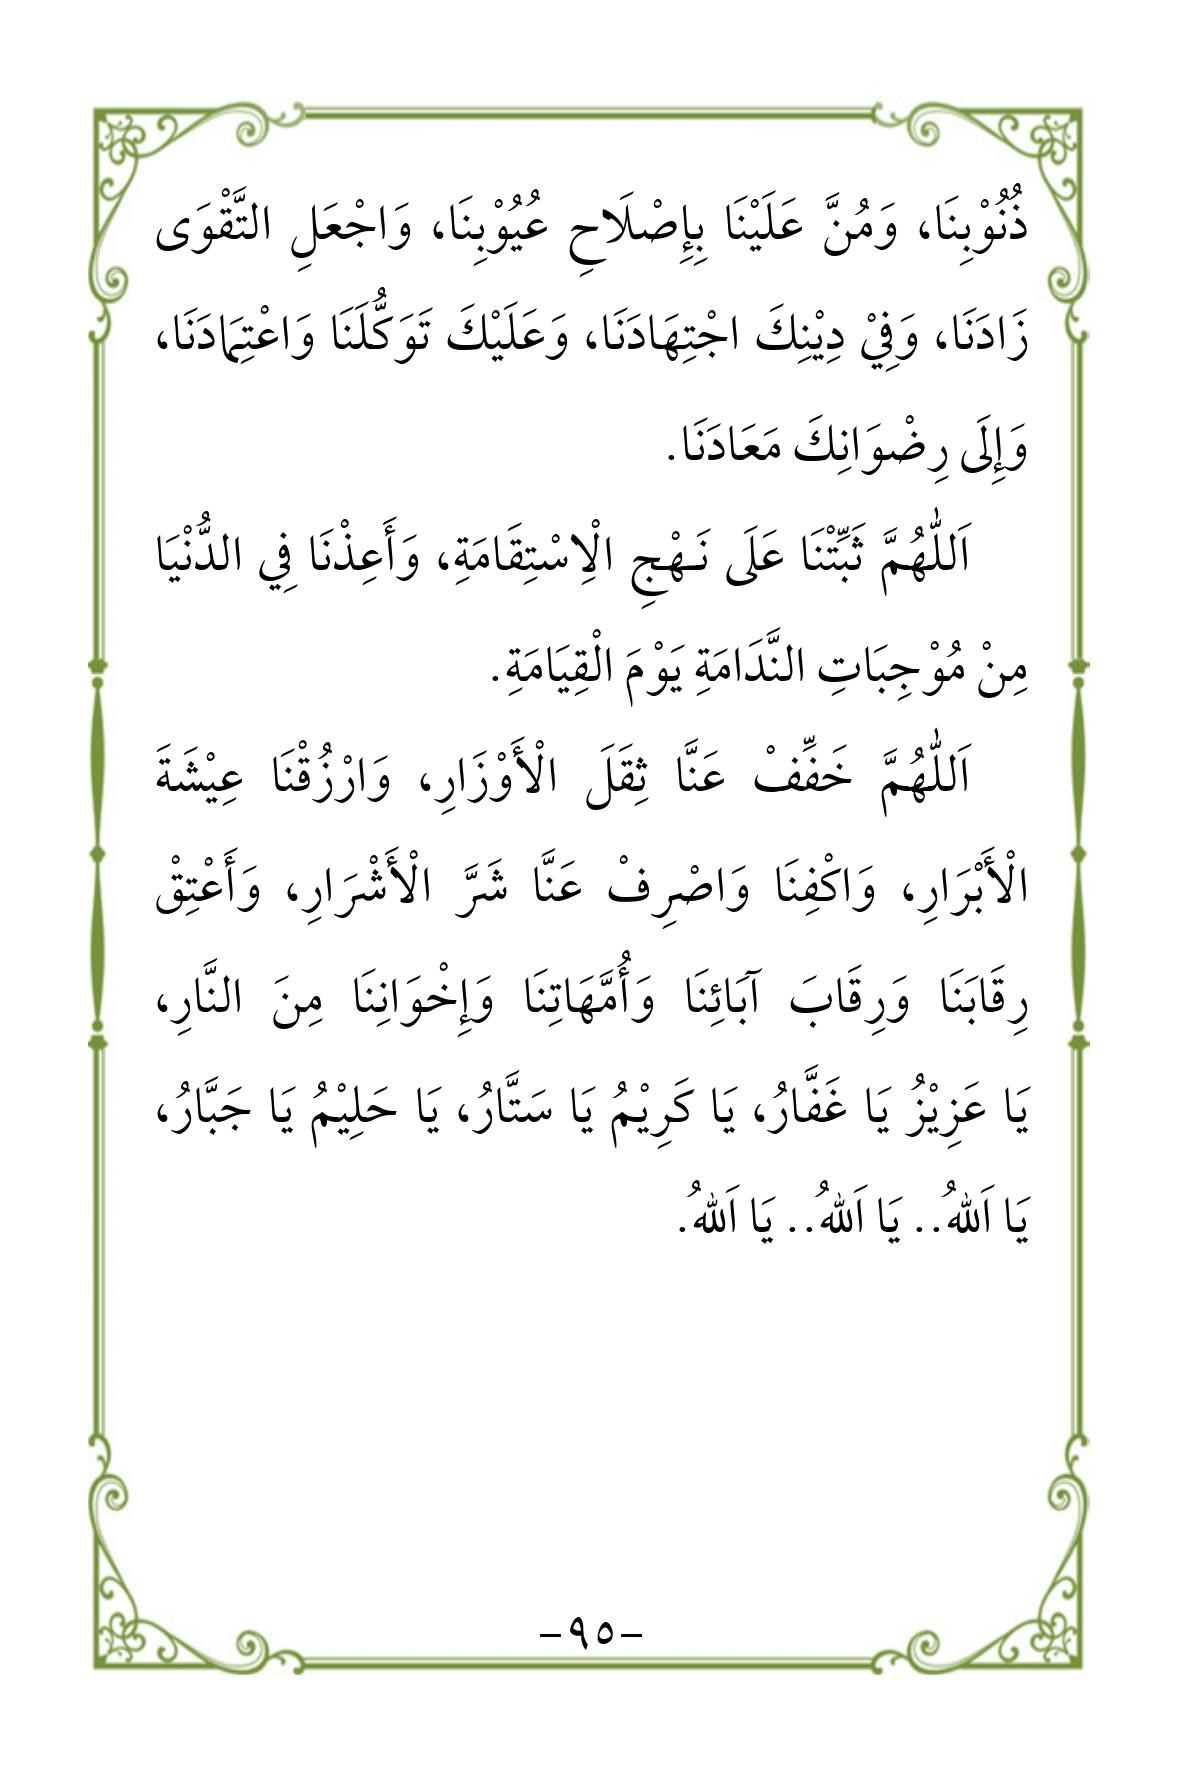 ذُنُوْبِنَا، وَمُنَّ عَلَيْنَا بِإِصْلَاحِ عُيُوْبِنَا، وَاجْعَلِ التَّقْوَى
زَادَنَا، وَفِيْ دِيْنِكَ اجْتِهَادَنَا، وَعَلَيْكَ تَوَكُّلَنَا وَاعْتِمَادَنَا،
وَإِلَى رِضْوَانِكَ مَعَادَنَا.
اَللّٰهُمَّ ثَبِّتْنَا عَلَى نَـهْجِ الْاِسْتِقَامَةِ، وَأَعِذْنَا فِي الدُّنْيَا
مِنْ مُوْجِبَاتِ النَّدَامَةِ يَوْمَ الْقِيَامَةِ.
اَللّٰهُمَّ خَفِّفْ عَنَّا ثِقَلَ الْأَوْزَارِ، وَارْزُقْنَا عِيْشَةَ
الْأَبْرَارِ، وَاكْفِنَا وَاصْرِفْ عَنَّا شَرَّ الْأَشْرَارِ، وَأَعْتِقْ
رِقَابَنَا وَرِقَابَ آبَائِنَا وَأُمَّهَاتِنَا وَإِخْوَانِنَا مِنَ النَّارِ،
يَا عَزِيْزُ يَا غَفَّارُ، يَا كَرِيْمُ يَا سَتَّارُ، يَا حَلِيْمُ يَا جَبَّارُ،
يَا اَللهُ.. يَا اَللهُ.. يَا اَللهُ.
-٩٥-